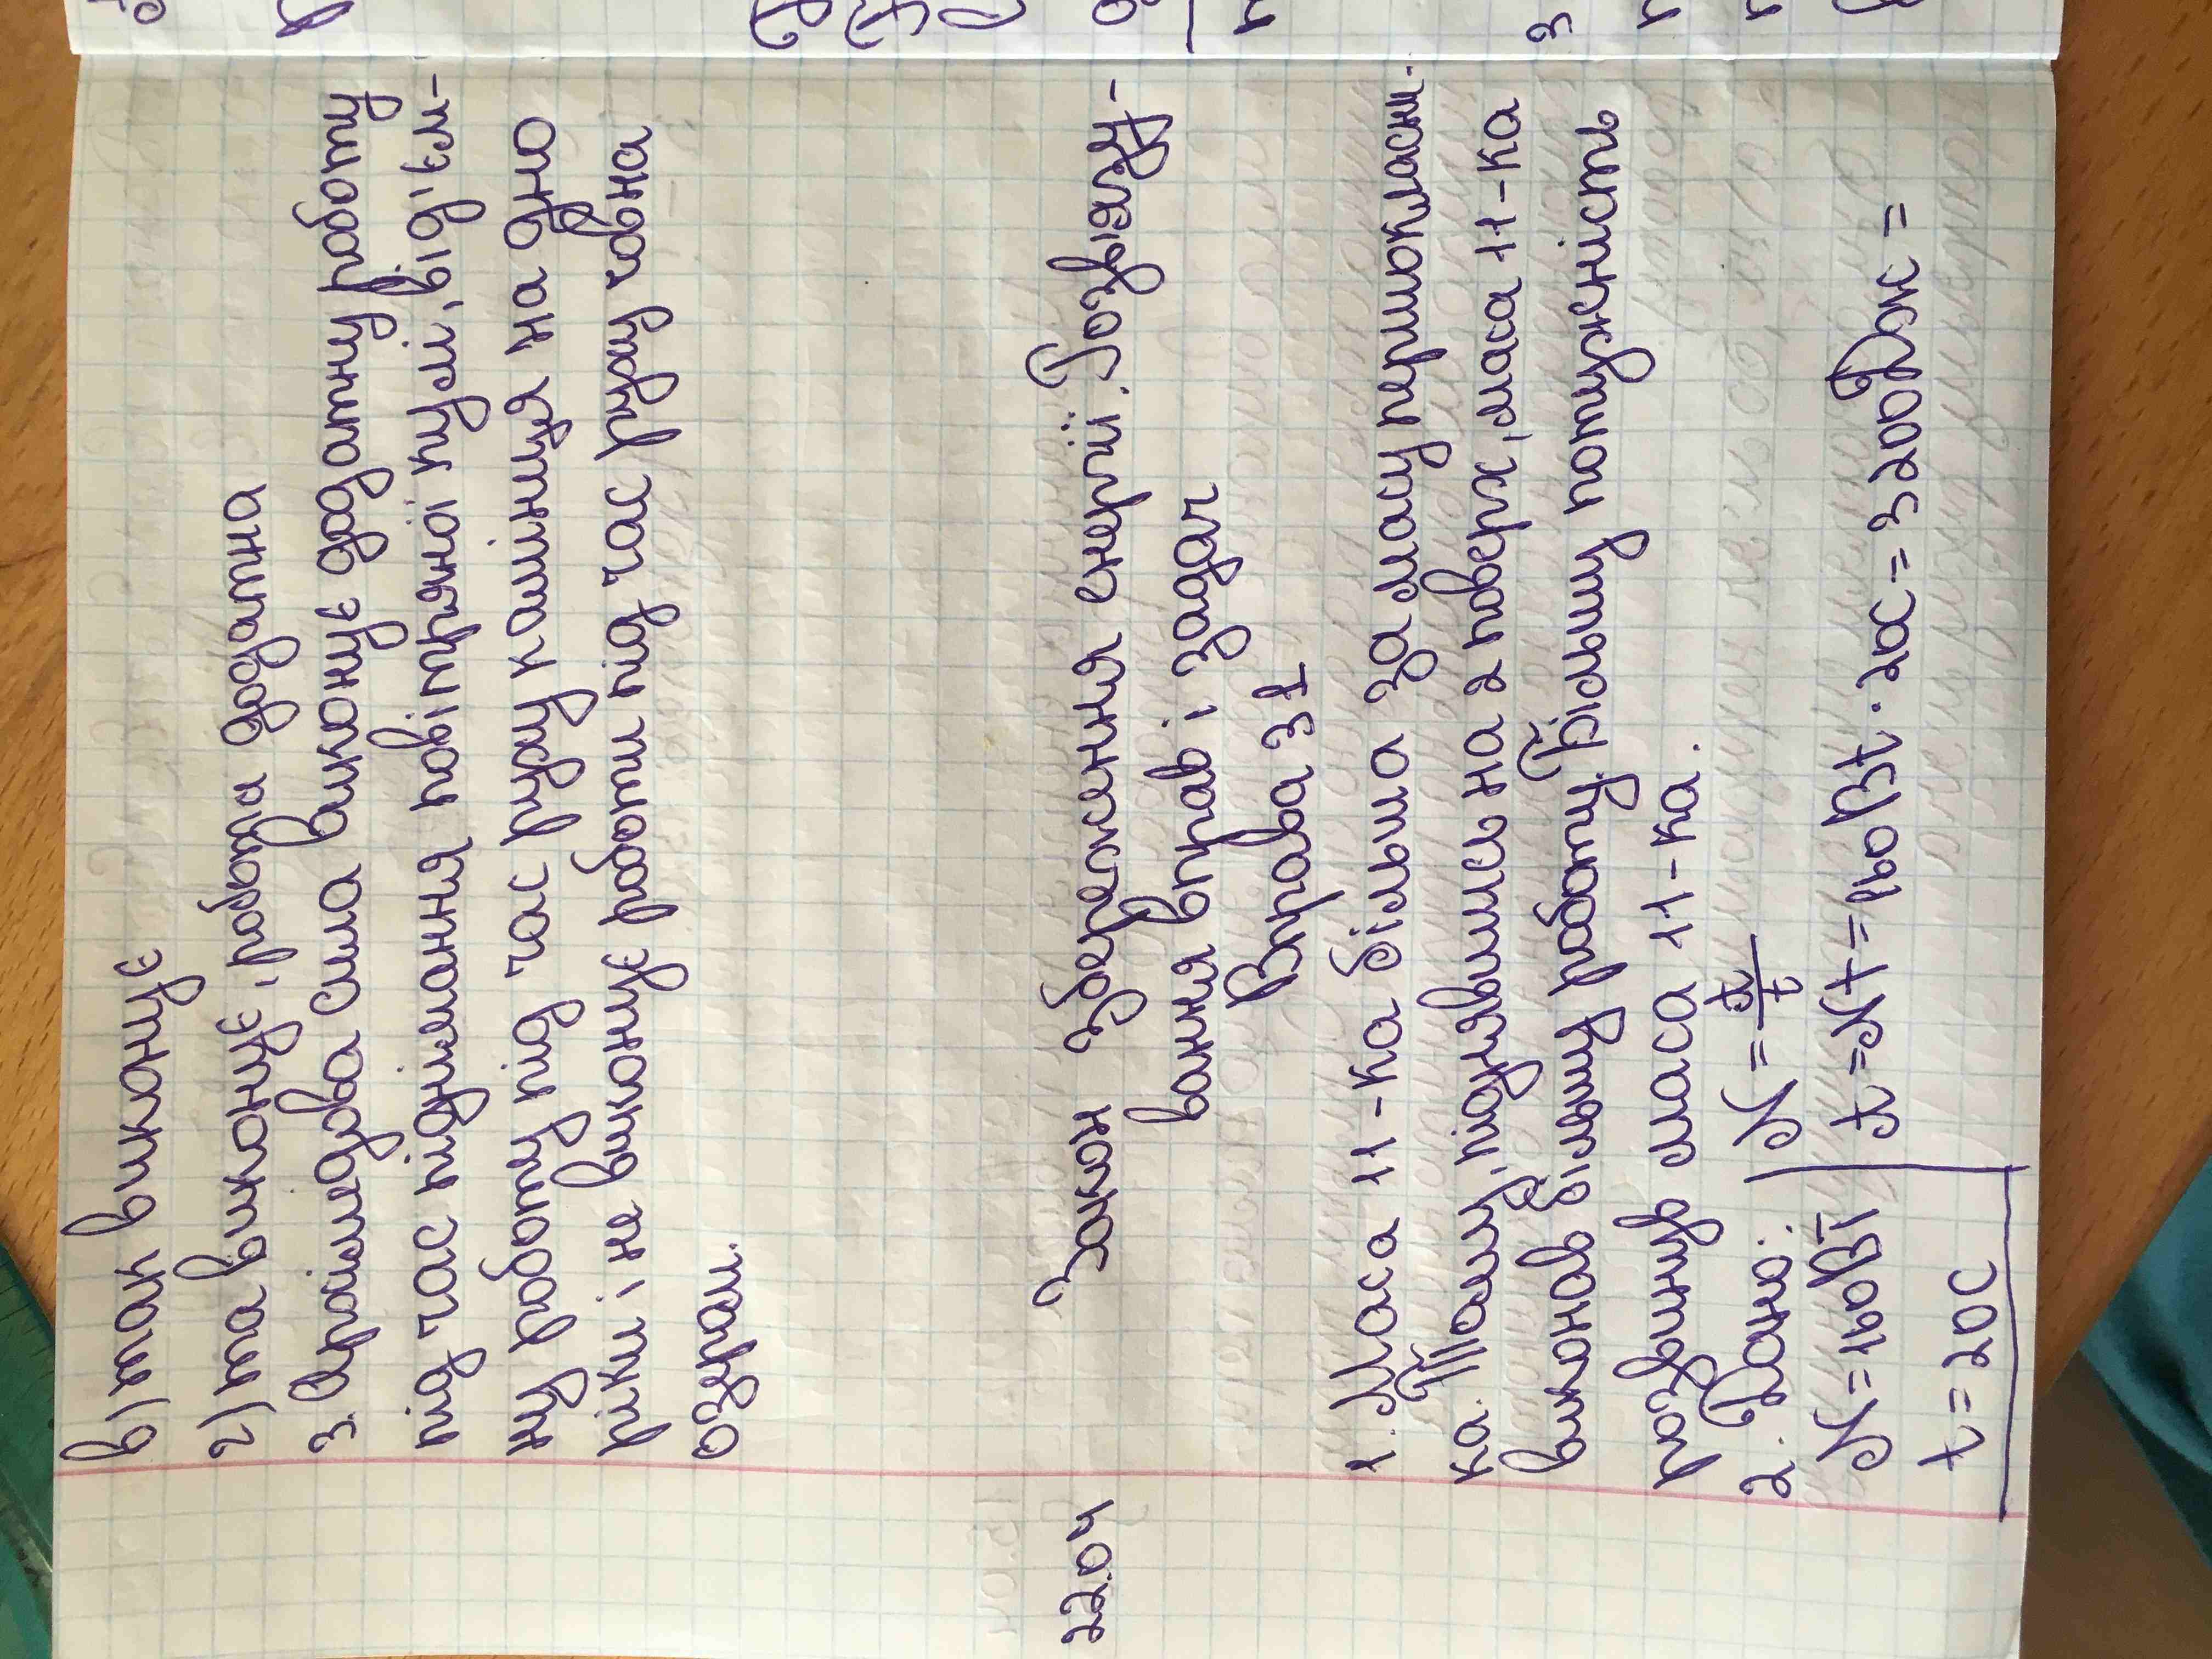 в) так виконує
г) та виконує, робота додатна
3. Архімедова сила виконує додатну роботу
під час піднімання повітряної кулі, від'єм-
ну роботу під час руху камінця на дно
ріки і не виконує роботи під час руху човна
озерам.
22.04 Закон збереження енергії. Розв'язу-
вання вправ і задач
Вправа 31
1. Маса 11-ка більша за масу першокласни-
ка. Тому, піднявшись на 2 поверх, маса 11-ка
виконав більшу роботу. Більшу потужність
розвинув маса 11-ка.
2. Дано: N = A/t
N = 160Вт A = Nt = 160Вт · 20с = 3200Дж =
t = 20с